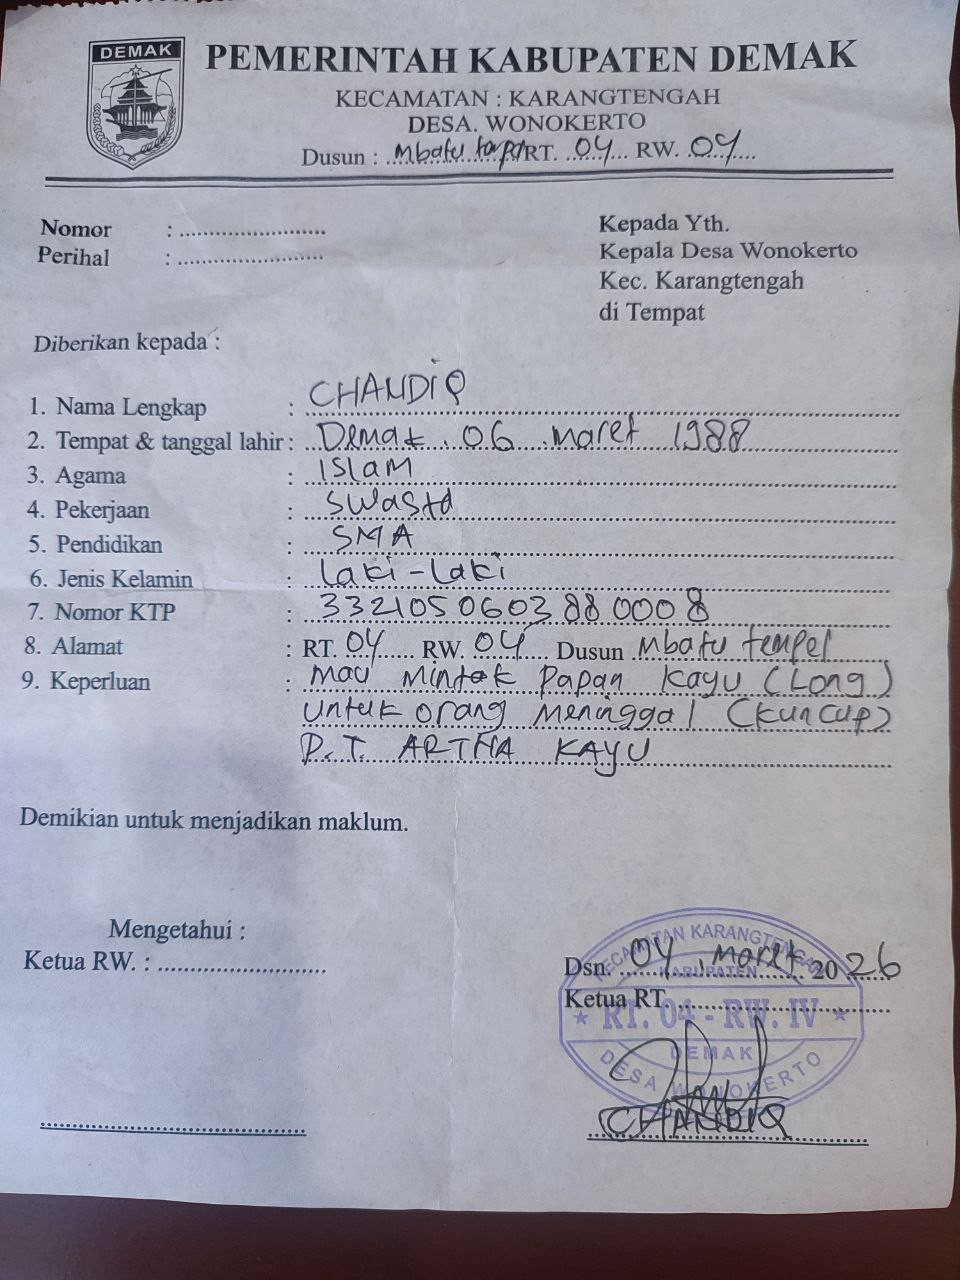 DEMAK
PEMERINTAH KABUPATEN DEMAK
KECAMATAN : KARANGTENGAH
DESA. WONOKERTO
Dusun : Mbatu RT. 04 RW. 04
Nomor : ........................
Perihal : ........................
Kepada Yth.
Kepala Desa Wonokerto
Kec. Karangtengah
di Tempat
Diberikan kepada :
1. Nama Lengkap : CHANDIQ
2. Tempat & tanggal lahir : Demak, 06 Maret 1988
3. Agama : Islam
4. Pekerjaan : Swasta
5. Pendidikan : SMA
6. Jenis Kelamin : Laki-Laki
7. Nomor KTP : 3321050603880008
8. Alamat : RT. 04 RW. 04 Dusun Mbatu tempel
9. Keperluan : mau mintak Papan Kayu (Long)
untuk orang Meninggal (Kuncup)
P.T. ARTHA KAYU
Demikian untuk menjadikan maklum.
Mengetahui :
Ketua RW. : ........................
Dsn. 04, Maret 2026
Ketua RT. ........................
KECAMATAN KARANGTENGAH
KABUPATEN
RT. 04 - RW. IV
DEMAK
DESA WONOKERTO
CHANDIQ